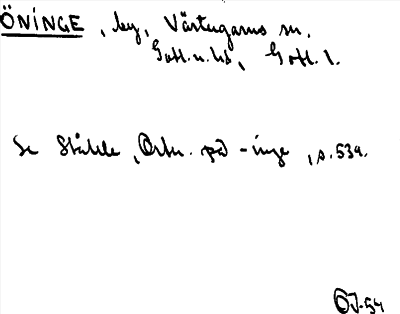 ÖNINGE, by, Västergarns sn,
Gotl. n. hd, Gotl. l.
Se Ståhle, Ortn. på -inge, s. 539.
ÖJ-54